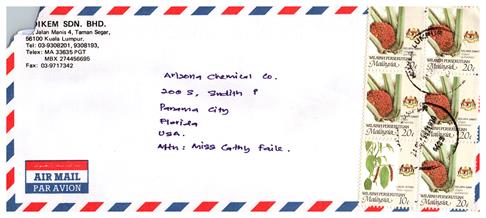 DIKEM SDN. BHD.
Jalan Manis 4, Taman Segar,
56100 Kuala Lumpur,
Tel: 03-9308201, 9308193,
Telex: MA 33635 PGT
MBX 274456695
Fax: 03-9717342
Arizona Chemical Co.
200 S,
Panama City
Florida
USA.
Attn: Miss Cathy Faile.
AIR MAIL
PAR AVION
WILAYAH PERSEKUTUAN
Malaysia 20¢
WILAYAH PERSEKUTUAN
Malaysia 20¢
WILAYAH PERSEKUTUAN
Malaysia 20¢
WILAYAH PERSEKUTUAN
Malaysia 20¢
WILAYAH PERSEKUTUAN
Malaysia 10¢
WILAYAH PERSEKUTUAN
Malaysia 20¢